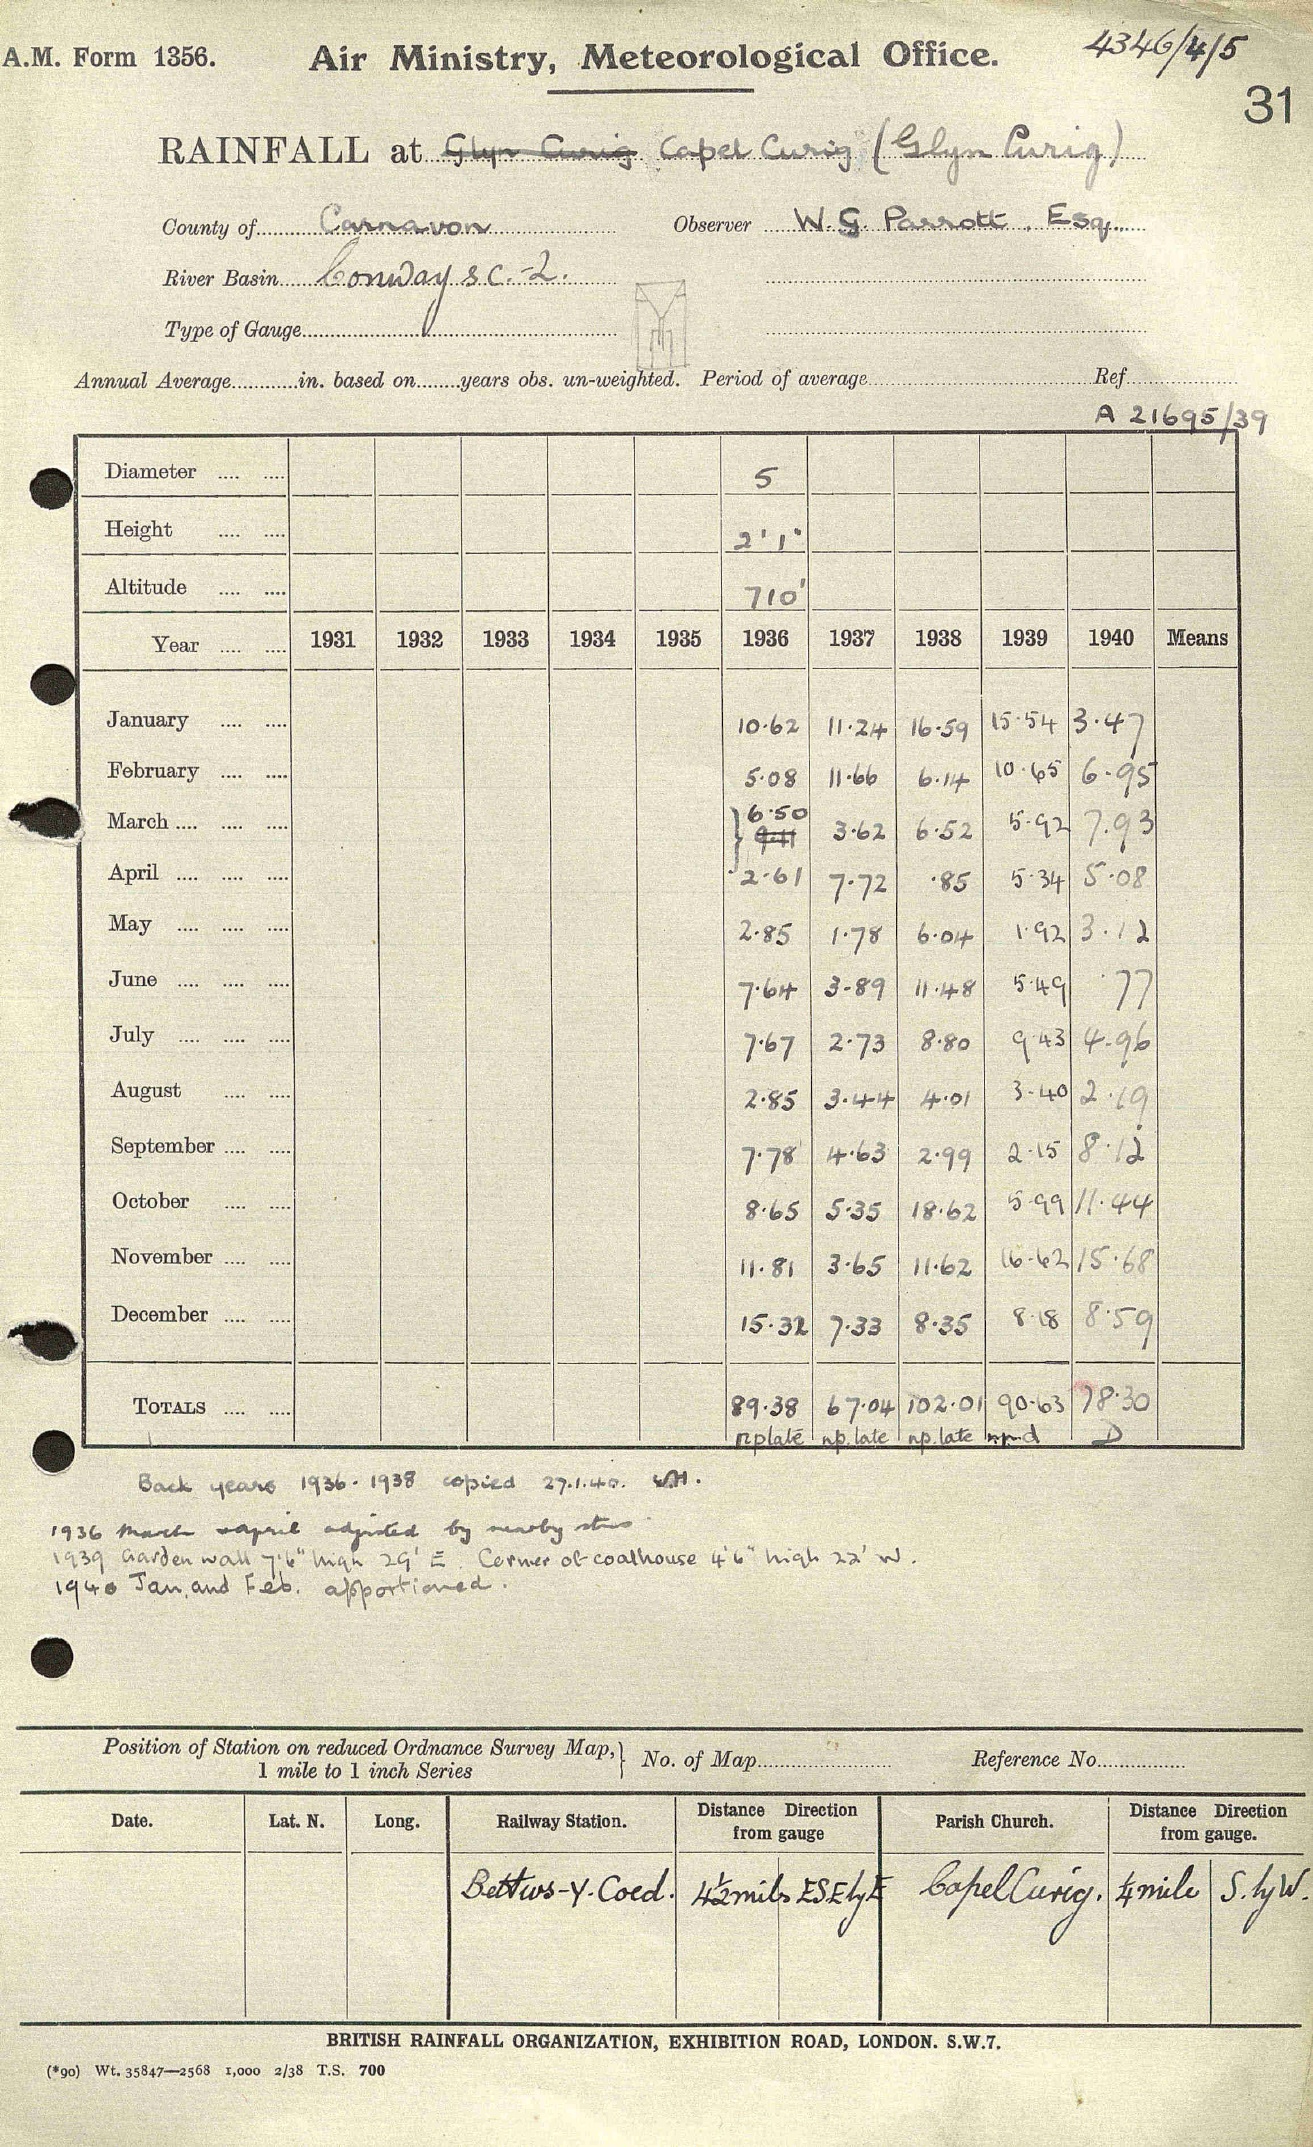 A.M. Form 1356. Air Ministry, Meteorological Office. 4346/4/5
31
RAINFALL at Glyn Curig Capel Curig (Glyn Curig)
County of Carnavon Observer W. G. Parrott, Esq.
River Basin Conway s c. -2.
Type of Gauge
Annual Average in. based on years obs. un-weighted. Period of average Ref
A 21695/39
Diameter 5
Height 2' 1"
Altitude 710'
Year 1931 1932 1933 1934 1935 1936 1937 1938 1939 1940 Means
January 10.62 11.24 16.59 15.54 3.47
February 5.08 11.66 6.14 10.65 6.95
March 6.50 9.11 3.62 6.52 5.92 7.93
April 2.61 7.72 .85 5.34 5.08
May 2.85 1.78 6.04 1.92 3.12
June 7.64 3.89 11.48 5.49 .77
July 7.67 2.73 8.80 9.43 4.96
August 2.85 3.44 4.01 3.40 2.19
September 7.78 4.63 2.99 2.15 8.12
October 8.65 5.35 18.62 5.99 11.44
November 11.81 3.65 11.62 16.62 15.68
December 15.32 7.33 8.35 8.18 8.59
TOTALS 89.38 67.04 102.01 90.63 78.30
np late np. late np. late D
Back years 1936-1938 copied 27.1.40.
1936 March & April adjusted by nearby stns
1939 Garden wall 7'6" high 29' E. Corner of coalhouse 4'6" high 22' W.
1940 Jan. and Feb. apportioned.
Position of Station on reduced Ordnance Survey Map, 1 mile to 1 inch Series } No. of Map Reference No.
Date. Lat. N. Long. Railway Station. Distance Direction from gauge Parish Church. Distance Direction from gauge.
Bettws-Y-Coed. 4½ miles ESE by E Capel Curig. ¼ mile S. by W.
BRITISH RAINFALL ORGANIZATION, EXHIBITION ROAD, LONDON. S.W.7.
(*90) Wt. 35847—2568 1,000 2/38 T.S. 700